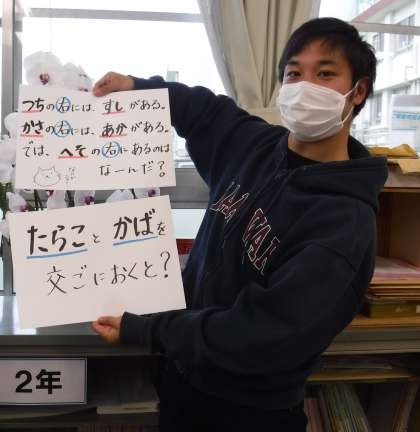 つちの右には、すしがある。
かさの右には、あかがある。
では、へその右にあるのは
なーんだ?
たらことかばを
交ごにおくと?
2年